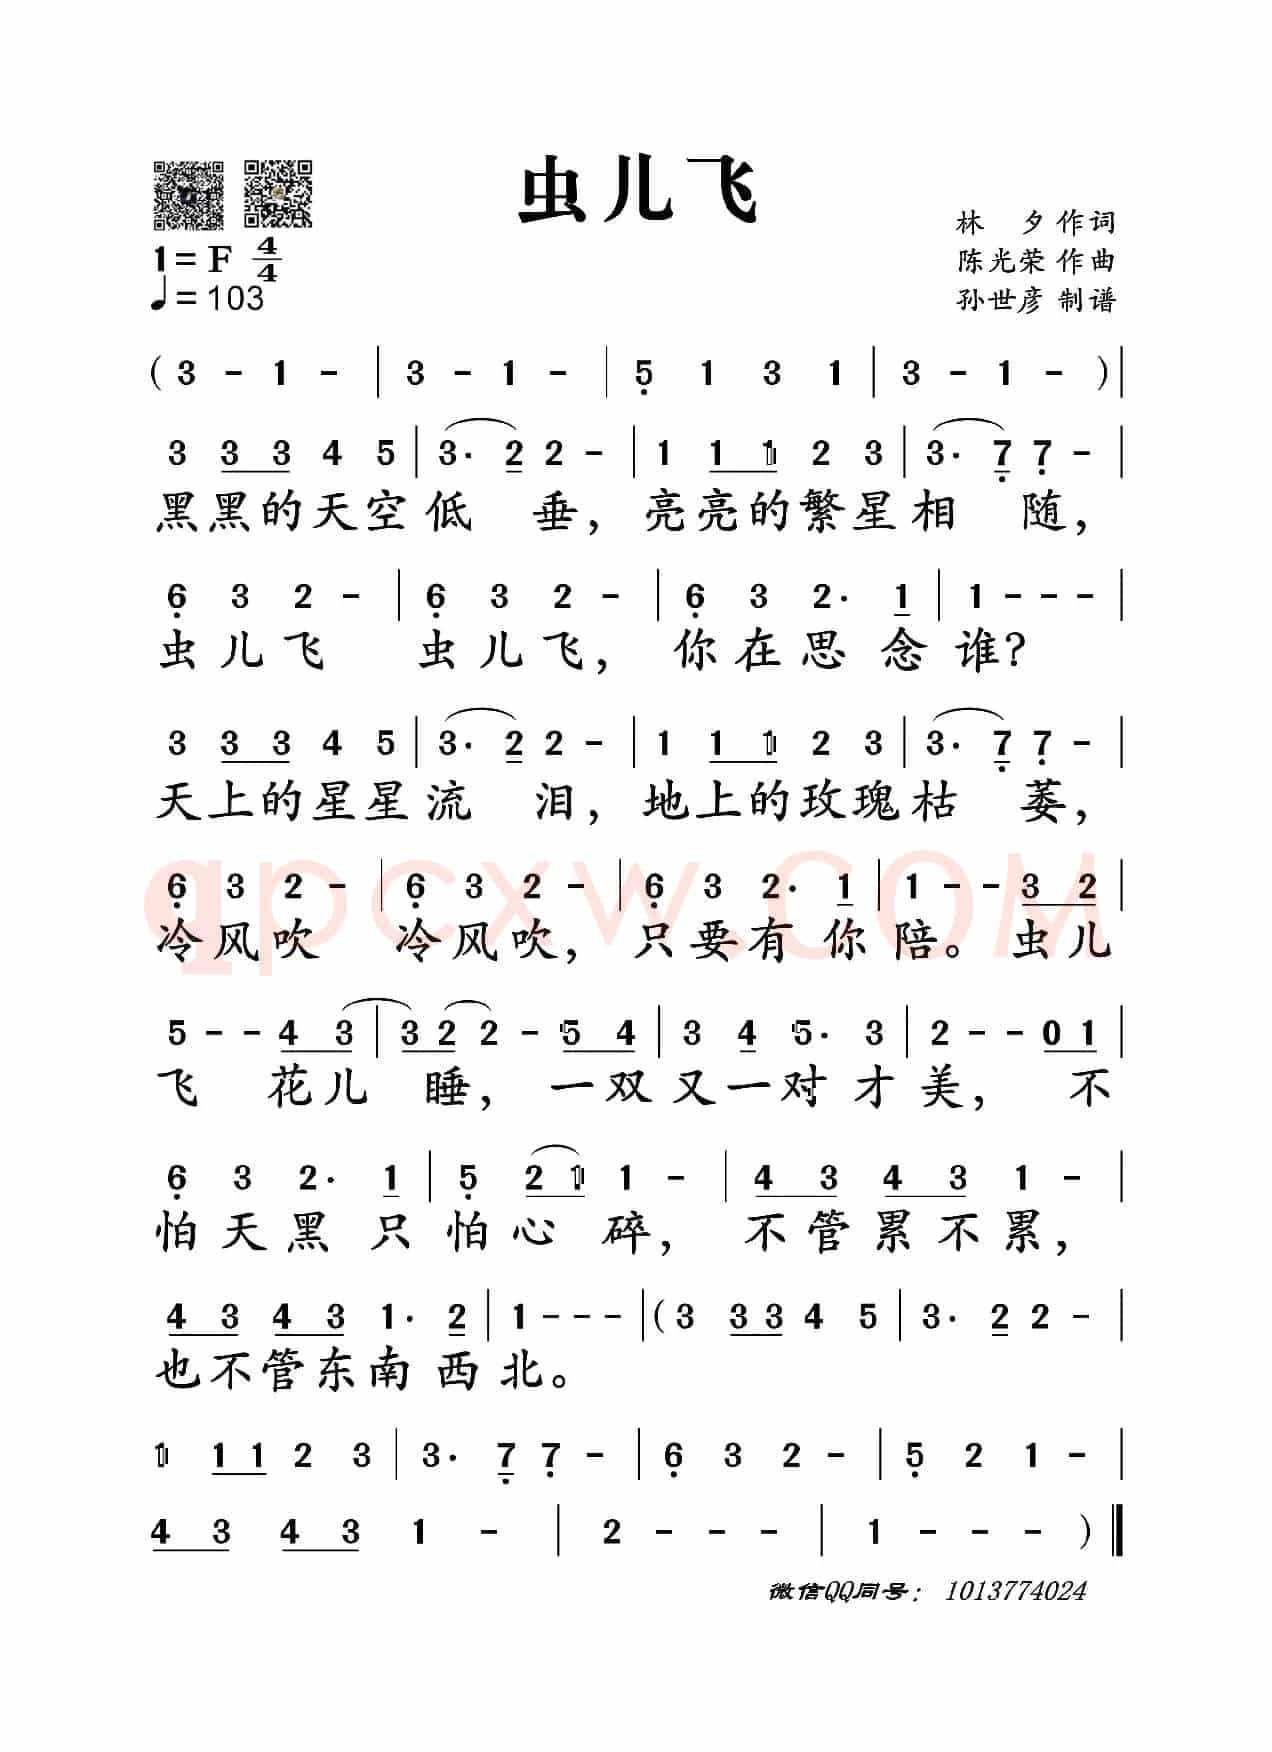 虫儿飞
林 夕 作词
1= F 4/4
陈光荣 作曲
♩= 103
孙世彦 制谱
( 3 - 1 - | 3 - 1 - | 5 1 3 1 | 3 - 1 - ) |
3 3 3 4 5 | 3. 2 2 - | 1 1 1 2 3 | 3. 7 7 - |
黑黑的天空低 垂, 亮亮的繁星相 随,
6 3 2 - | 6 3 2 - | 6 3 2. 1 | 1 - - - |
虫儿飞 虫儿飞, 你在思念谁?
3 3 3 4 5 | 3. 2 2 - | 1 1 1 2 3 | 3. 7 7 - |
天上的星星流 泪, 地上的玫瑰枯 萎,
6 3 2 - | 6 3 2 - | 6 3 2. 1 | 1 - - 3 2 |
冷风吹 冷风吹, 只要有你陪。虫儿
qpcxw.COM
5 - - 4 3 | 3 2 2 - 5 4 | 3 4 5. 3 | 2 - - 0 1 |
飞 花儿 睡, 一双又一对才美, 不
6 3 2. 1 | 5 2 1 1 - | 4 3 4 3 1 - |
怕天黑只怕心 碎, 不管累不累,
4 3 4 3 1. 2 | 1 - - - | ( 3 3 3 4 5 | 3. 2 2 - |
也不管东南西北。
1 1 1 2 3 | 3. 7 7 - | 6 3 2 - | 5 2 1 - |
4 3 4 3 1 - | 2 - - - | 1 - - - ) ‖
微信QQ同号: 1013774024